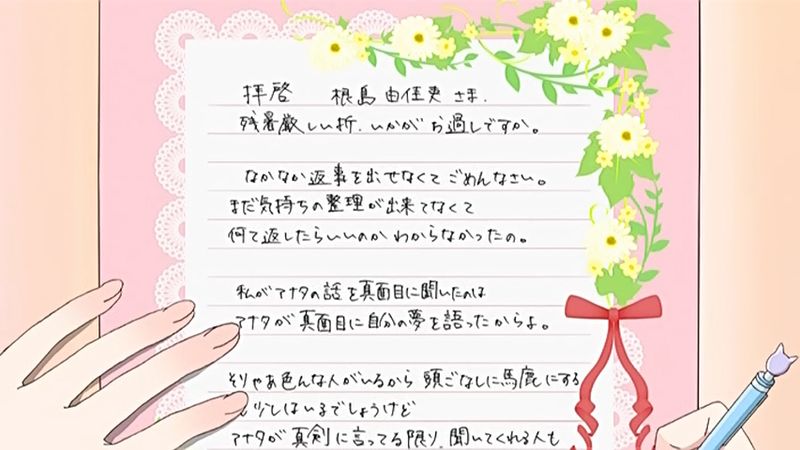 拝啓　根島 由佳吏 さま.
残暑厳しい折. いかがお過しですか。
なかなか返事を出せなくてごめんなさい。
まだ気持ちの整理が出来てなくて
何て返したらいいのかわからなかったの。
私がアナタの話を真面目に聞いたのは
アナタが真面目に自分の夢を語ったからよ。
そりゃあ色んな人がいるから 頭ごなしに馬鹿にする
少しはいるでしょうけど
アナタが真剣に言ってる限り、聞いてくれる人も